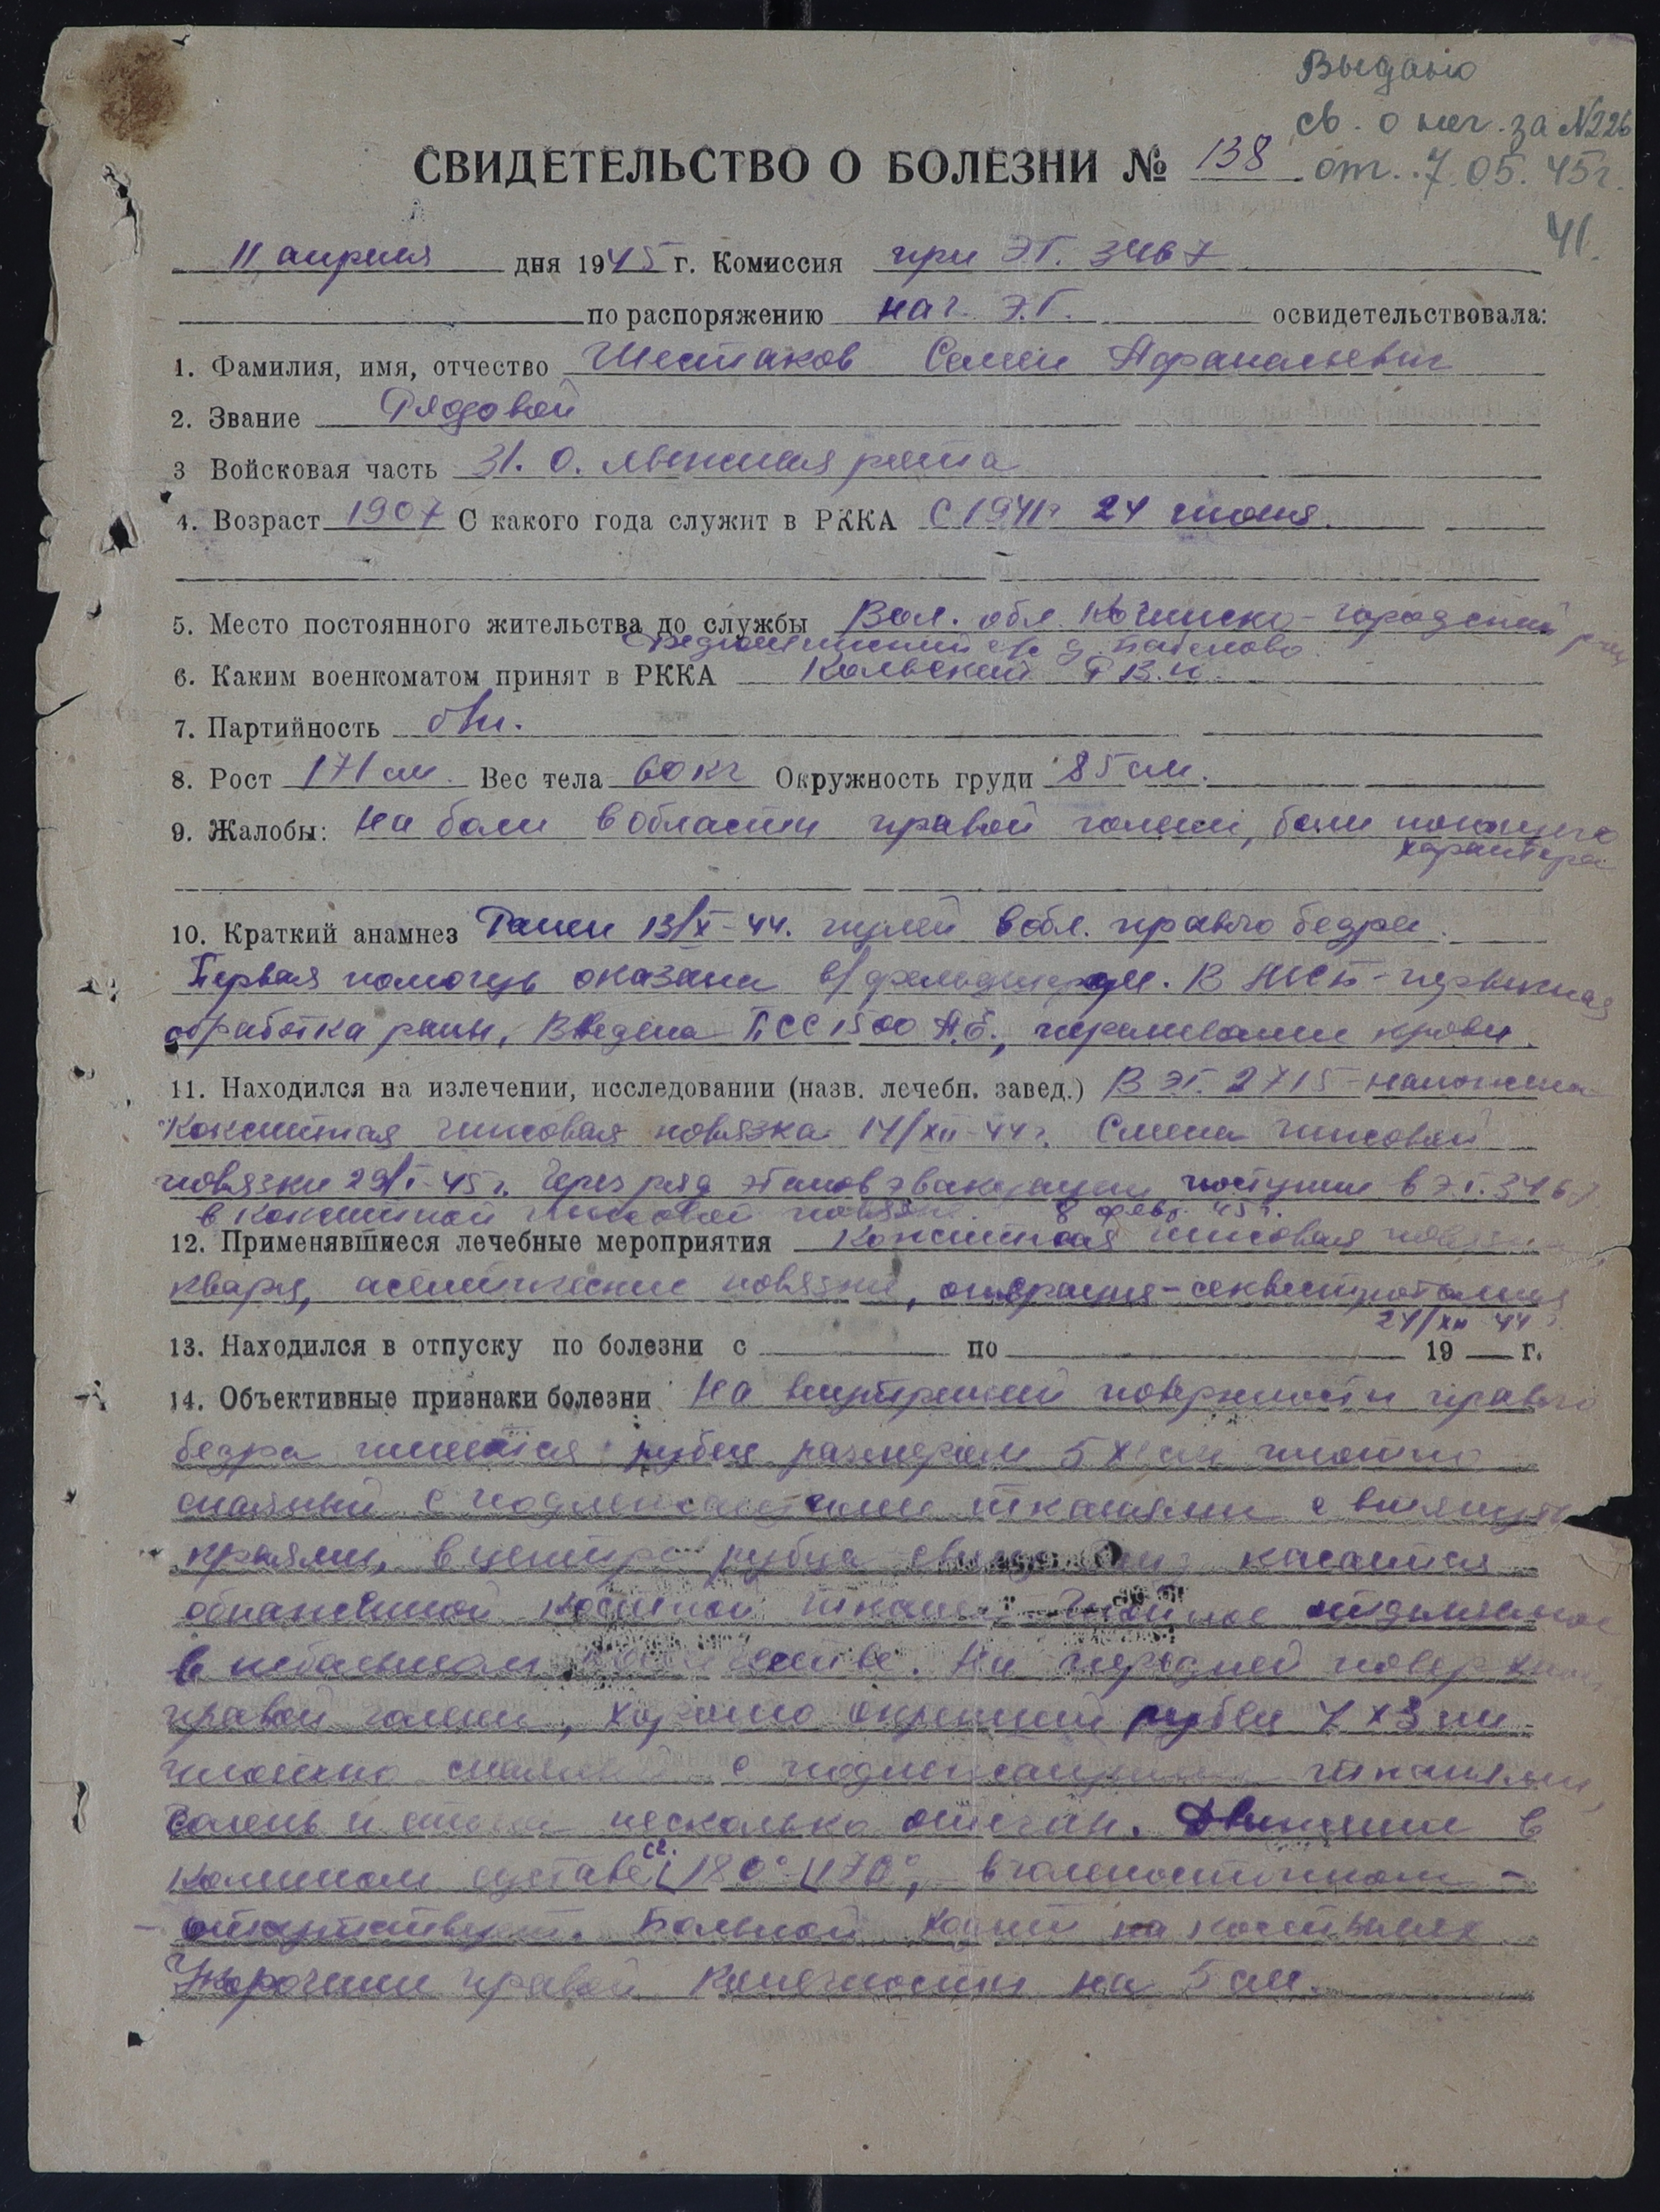 Выдано
св. о исч. за №226
от. 7.05.45г.
СВИДЕТЕЛЬСТВО О БОЛЕЗНИ № 138
41.
11 апреля дня 1945 г. Комиссия при ЭГ. 3467
по распоряжению нач. Э.Г. освидетельствовала:
1. Фамилия, имя, отчество Шестаков Семен Афанасьевич
2. Звание Рядовой
3 Войсковая часть 31. О. лыжная рота
4. Возраст 1907 С какого года служит в РККА С 1941г 24 июня.
5. Место постоянного жительства до службы Вол. обл. Кичменско-городецкий р-н
с/с д.
6. Каким военкоматом принят в РККА Кольский Р.В.К.
7. Партийность б/п.
8. Рост 171 см. Вес тела 60 кг Окружность груди 85 см.
9. Жалобы: На боли в области правой голени, боли ноющего
характера
10. Краткий анамнез Ранен 13/X-44. пулей в обл. правого бедра.
Первая помощь оказана в/фельдшером. В первичная
обработка раны, Введена ПСС 1500 А.Е., переливание крови.
11. Находился на излечении, исследовании (назв. лечебн. завед.) В ЭГ. 2715 наложена
Кокситная гипсовая повязка 14/XII-44г. Смена гипсовой
повязки 29/I-45г. Через ряд этапов эвакуации поступил в ЭГ. 3467
в кокситной гипсовой повязке. 8 февр. 45г.
12. Применявшиеся лечебные мероприятия Кокситная гипсовая повязка
кварц, асептические повязки, операция-секвестротомия
24/XII 44
13. Находился в отпуску по болезни с по 19 г.
14. Объективные признаки болезни На внутренней поверхности правого
бедра имеется рубец размером 5 х см плотно
спаянный с подлежащими тканями с втянутыми
краями, в центре рубца касается
обнаженной костной ткани. Гнойное отделяемое
в небольшом количестве. На передней поверхности
правой голени, хорошо окрепший рубец 7 х 3 см
плотно спаянный с подлежащими тканями,
Голень и стопа несколько отечны. Движения в
коленном суставе с ∠180°-∠170°, в голеностопном -
- отсутствуют. Больной ходит на костылях
Укорочение правой конечности на 5 см.